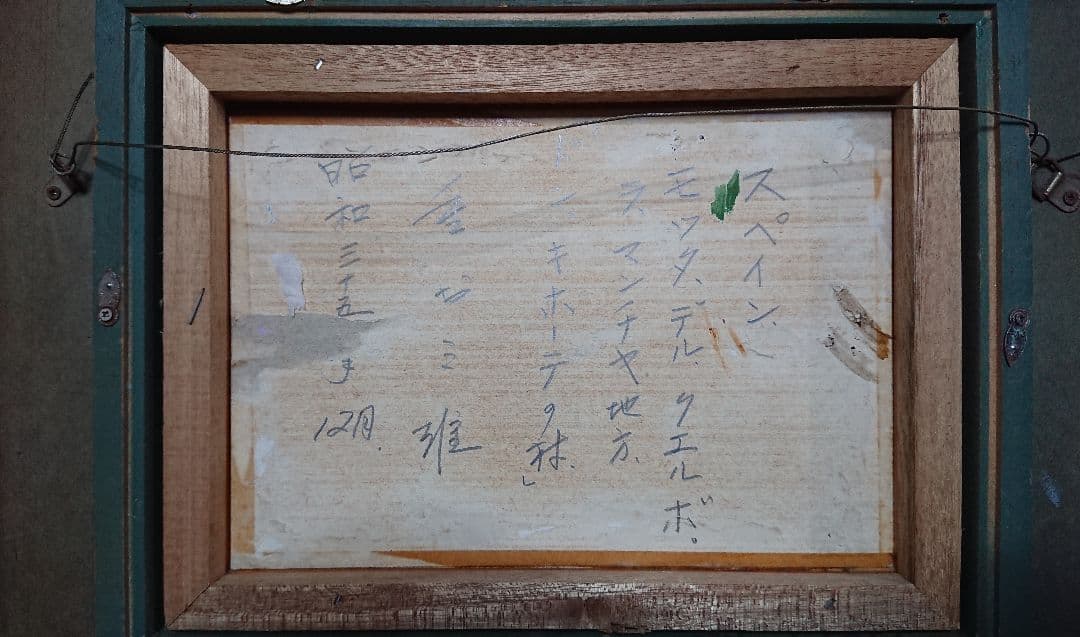 スペイン、
モツタ、デル、クエルボ。
ラ、マンチヤ、地方、
キホーテの村、」
昭和三十五年 12月